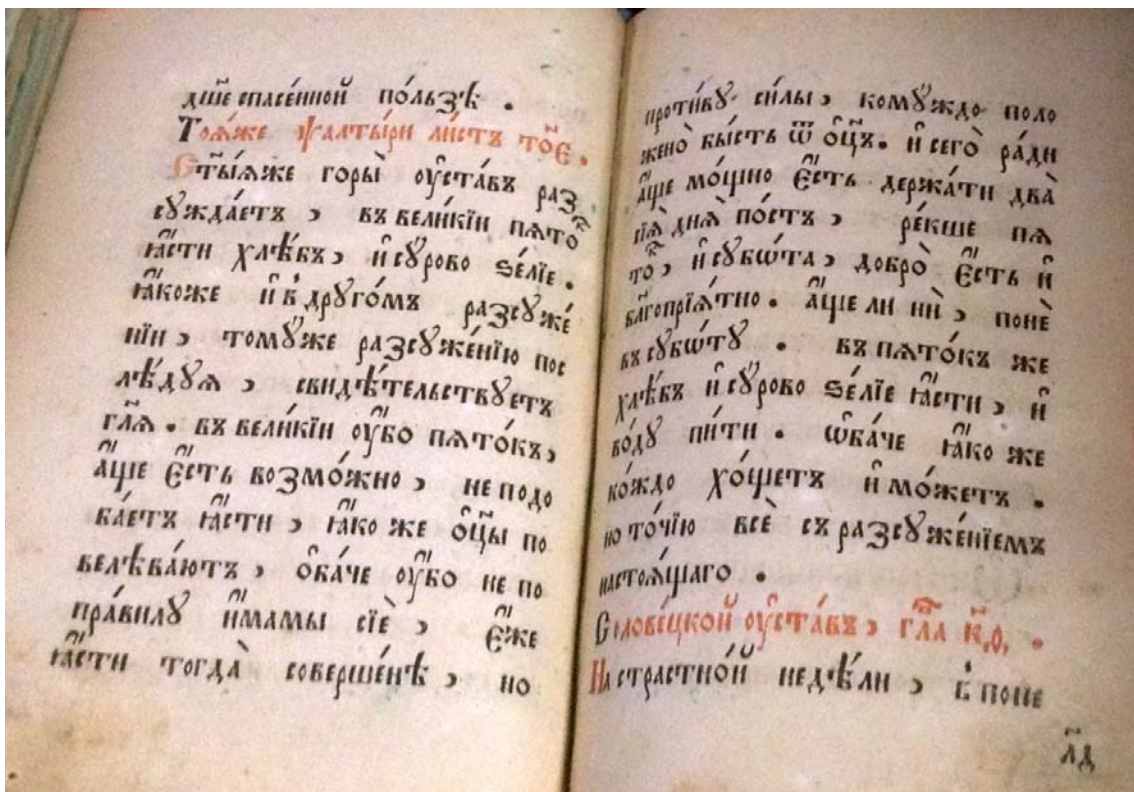 дш҃е спасе́нной по́льзѣ .
Тоѧ́же ѱалты́ри ли́стъ то҃є .
Ст҃ы́ѧже горы̀ оу҆ста́въ раз
сꙋжда́етъ , въ вели́кїи пѧто҇
ꙗ҆́сти хлѣ́бъ , и҆ сꙋ́рово ѕе́лїе .
ꙗ҆́коже и҆ в҄ дрꙋго́мъ разсꙋже́
нїи , томꙋ́же разсꙋже́нїю пос
лѣ́дꙋѧ , свидѣ́тельствꙋетъ
гл҃ѧ . въ вели́кїи оу҆́бо пѧто́къ ,
а҆́ще є҆́сть возмо́жно , не подо
ба́етъ ꙗ҆́сти , ꙗ҆́ко же ѻ҆ц҃ы по
велѣва́ютъ , ѻ҆ба́че оу҆́бо не по
пра́вилꙋ и҆́мамы сїѐ , є҆́же
ꙗ҆́сти тогда̀ соверше́нѣ , но
проти́вꙋ си́лы , комꙋ́ждо поло
жено̀ бы́сть ѿ ѻ҆ц҃ъ . и҆ сего̀ ра́ди
а҆́ще мо́щно є҆́сть держа́ти два̀
сїѧ̀ днѧ̀ по́стъ , ре́кше пѧ
то҇ , и҆ сꙋбѡ́та , добро̀ є҆́сть и҆
бл҃гопрїѧ́тно . а҆́ще ли нѝ , понѐ
въ сꙋбѡ́тꙋ . въ пѧто́къ же
хлѣ́бъ и҆ сꙋ́рово ѕе́лїе ꙗ҆́сти , и҆
во́дꙋ пи́ти . ѡ҆ба́че ꙗ҆́ко же
ко́ждо хо́щетъ и҆ мо́жетъ .
но то́чїю всѐ съ разсꙋжде́нїемъ
настоѧ́щаго .
Солове́цкой оу҆ста́въ , гл҃а к҃ѳ , .
На страстно́й недѣ́ли , в҄ поне
л҃д